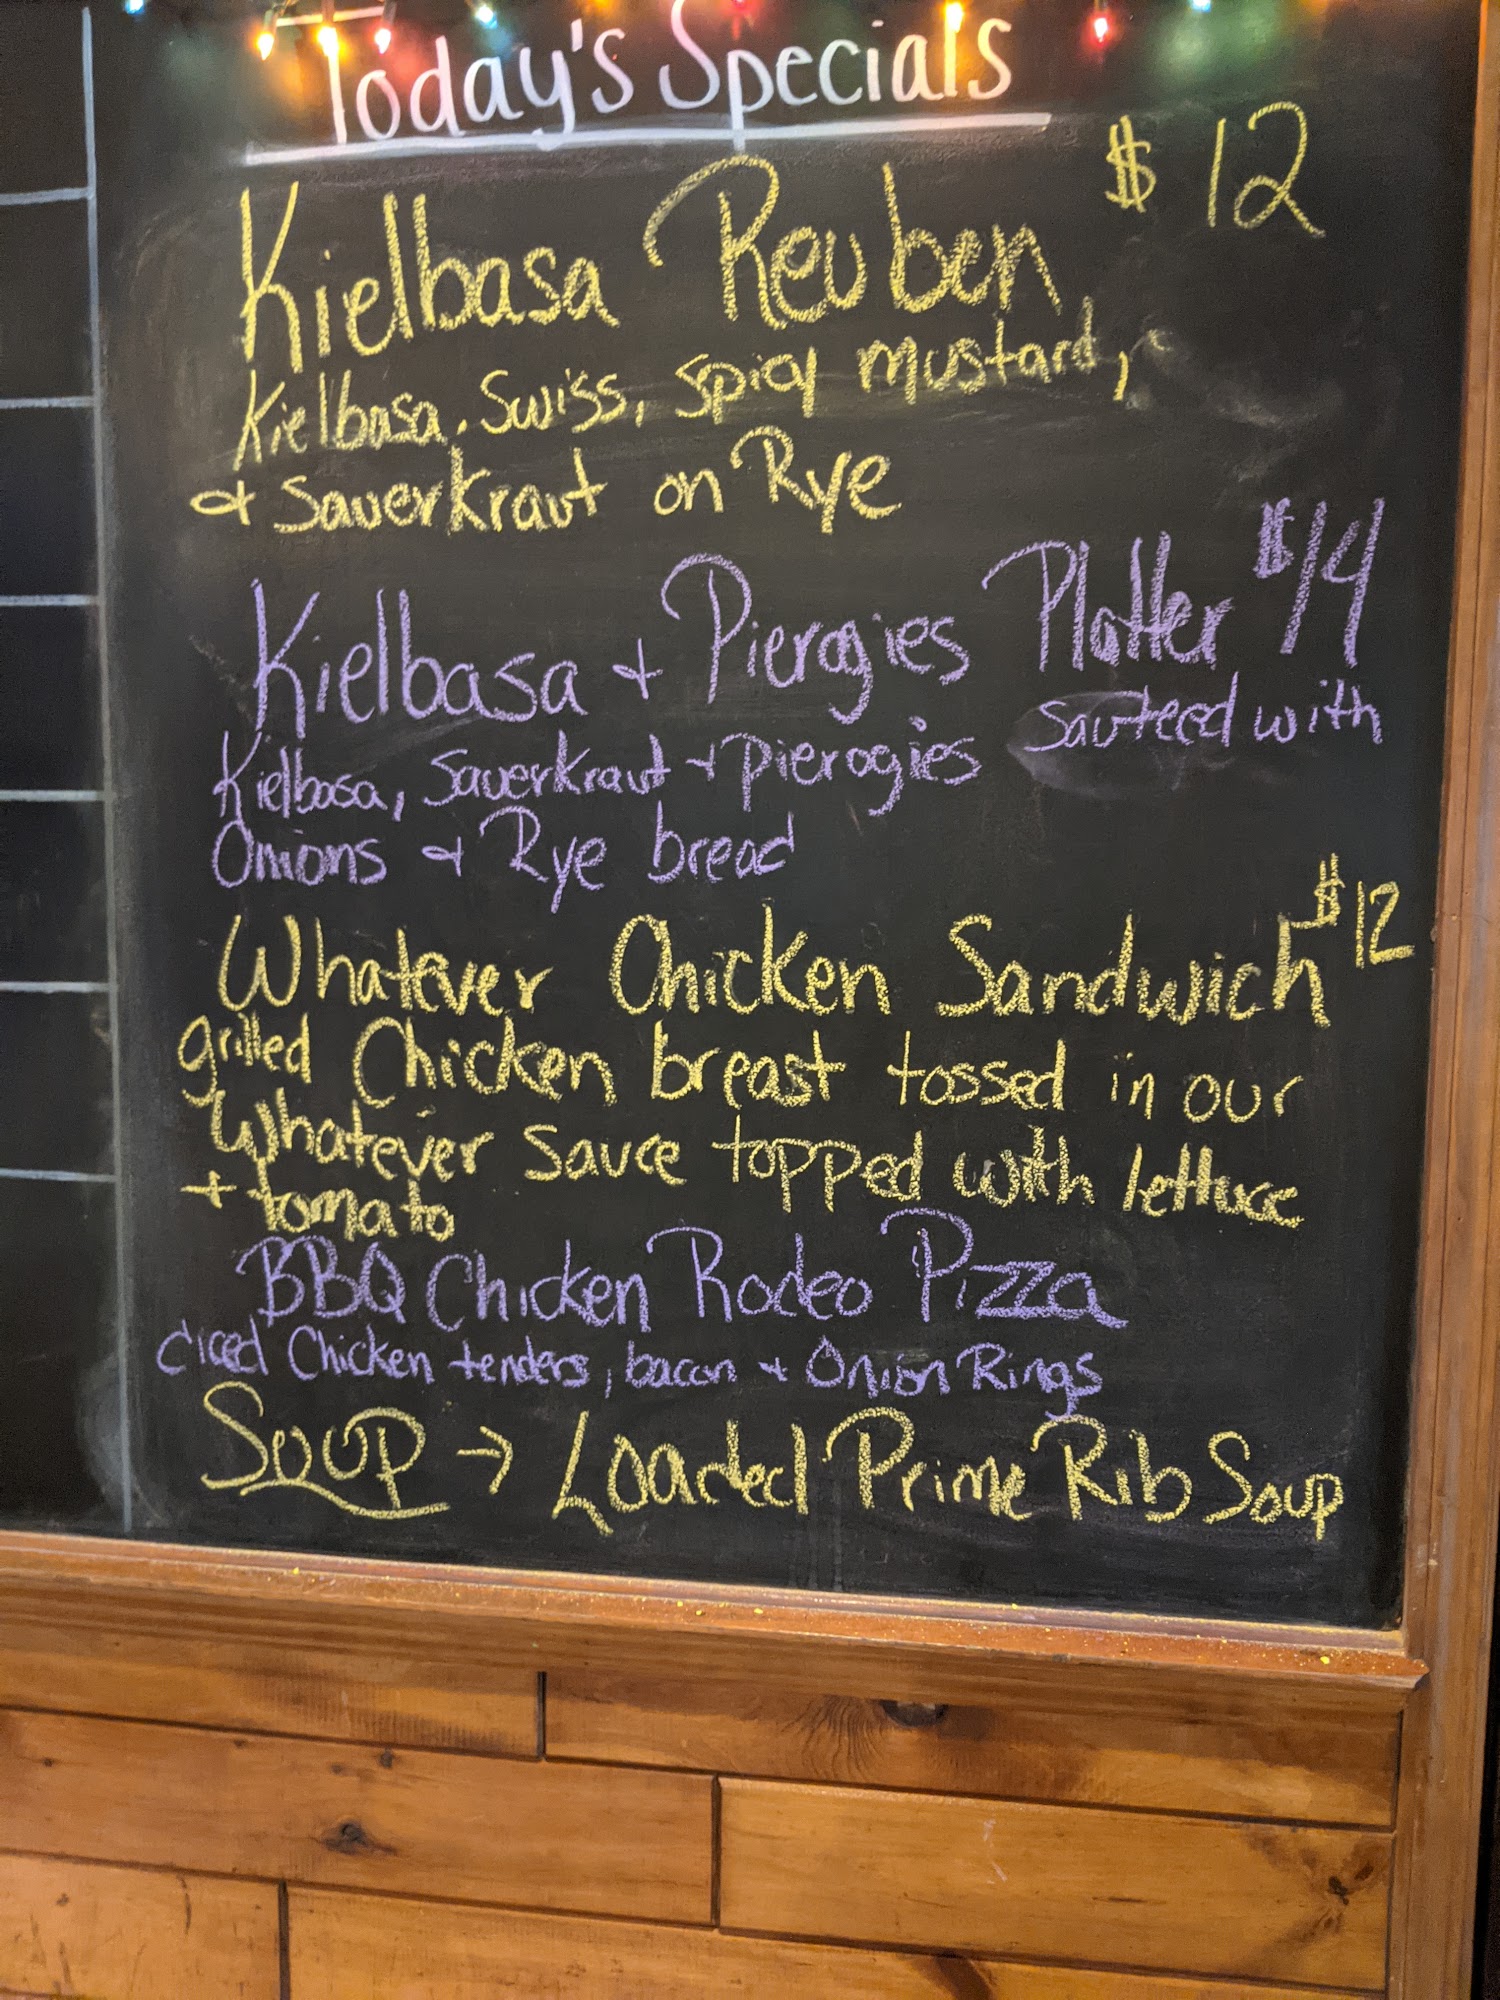 Today's Specials
Kielbasa Reuben $12
Kielbasa, Swiss, spicy mustard,
& Sauerkraut on Rye
Kielbasa + Pierogies Platter $14
Kielbasa, Sauerkraut + pierogies sauteed with
Onions & Rye bread
Whatever Chicken Sandwich $12
grilled Chicken breast tossed in our
Whatever sauce topped with lettuce
+ tomato
BBQ Chicken Rodeo Pizza
diced Chicken tenders, bacon + Onion Rings
Soup → Loaded Prime Rib Soup